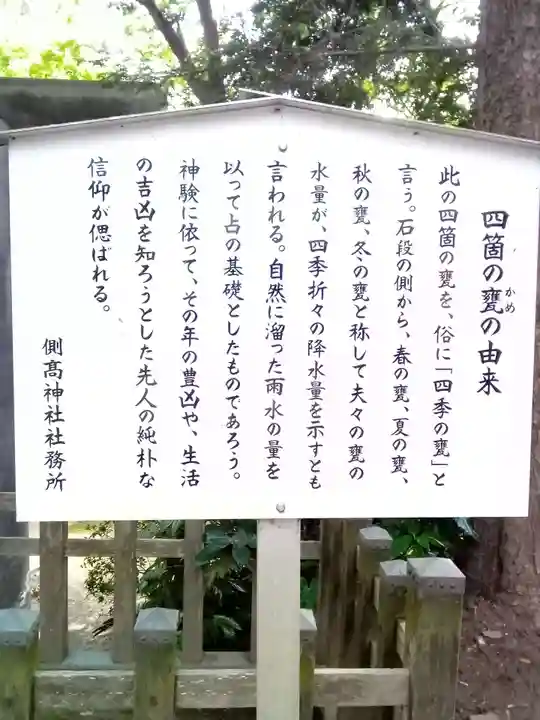 四箇の甕の由来
かめ
此の四箇の甕を、俗に「四季の甕」と
言う。石段の側から、春の甕、夏の甕、
秋の甕、冬の甕と称して夫々の甕の
水量が、四季折々の降水量を示すとも
言われる。自然に溜った雨水の量を
以って占の基礎としたものであろう。
神験に依って、その年の豊凶や、生活
の吉凶を知ろうとした先人の純朴な
信仰が偲ばれる。
側髙神社社務所